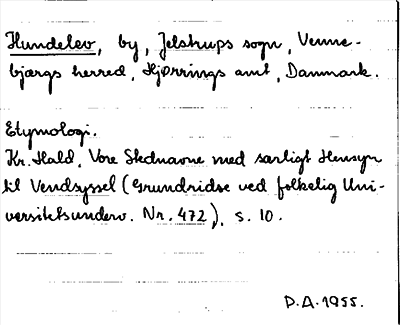 Hundelev, by, Jelstrups sogn, Venne-
bjærgs herred, Hjørrings amt, Danmark.
Etymologi.
Kr. Hald, Vore Stednavne med særligt Hensyn
til Vendsyssel (Grundridse ved folkelig Uni-
versitetsunderv. Nr. 472), s. 10.
P.A. 1955.